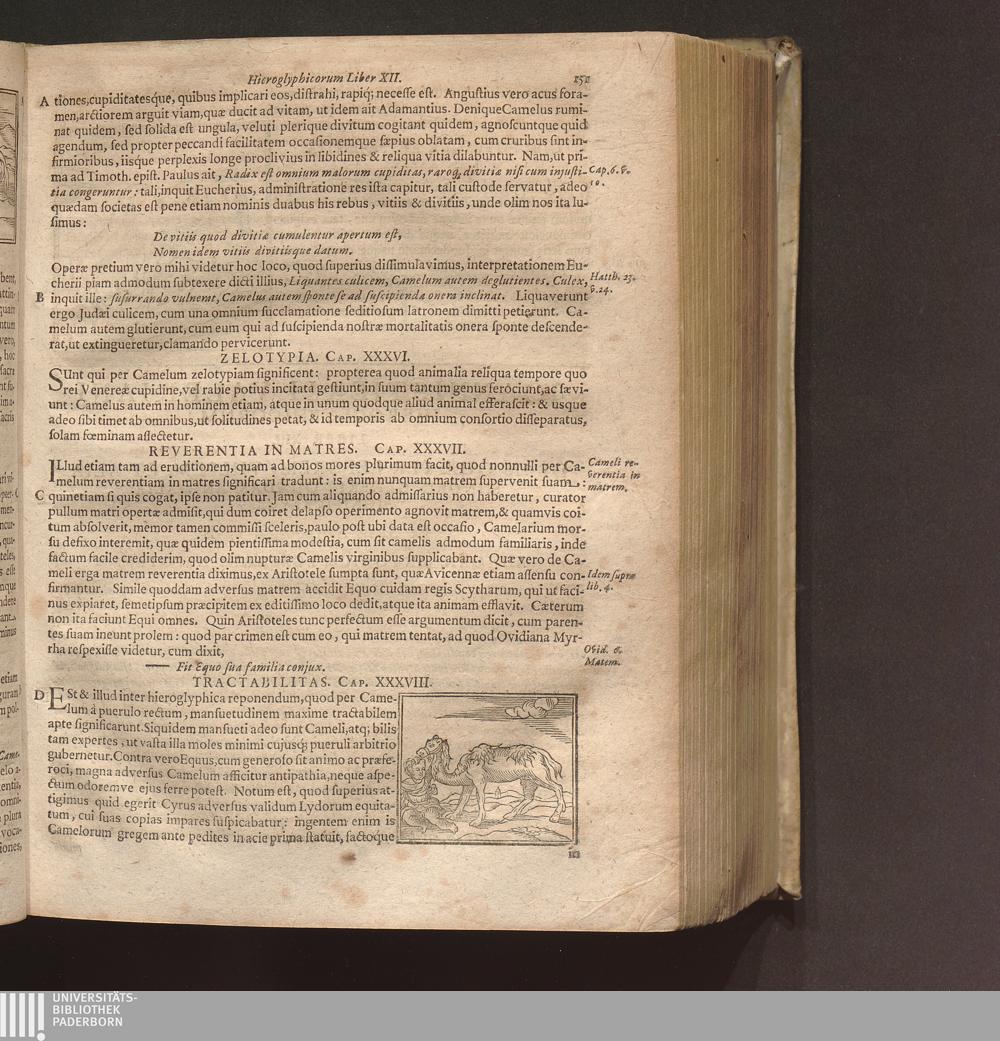 Hieroglyphicorum Liber XII. 151
A tiones, cupiditatesque, quibus implicari eos, distrahi, rapiq; necesse est. Angustius vero acus fora-
men, arctiorem arguit viam, quæ ducit ad vitam, ut idem ait Adamantius. Denique Camelus rumi-
nat quidem, sed solida est ungula, veluti plerique divitum cogitant quidem, agnoscuntque quid
agendum, sed propter peccandi facilitatem occasionemque sæpius oblatam, cum cruribus sint in-
firmioribus, iisque perplexis longe proclivius in libidines & reliqua vitia dilabuntur. Nam, ut pri-
ma ad Timoth. epist. Paulus ait, Radix est omnium malorum cupiditas, raroq, divitiæ nisi cum injusti-
Cap. 6. v.
10.
tia congeruntur: tali, inquit Eucherius, administratione res ista capitur, tali custode servatur, adeo
quædam societas est pene etiam nominis duabus his rebus, vitiis & divitiis, unde olim nos ita lu-
simus:
De vitiis quod divitiæ cumulentur apertum est,
Nomen idem vitiis divitiisque datum.
Operæ pretium vero mihi videtur hoc loco, quod superius dissimulavimus, interpretationem Eu-
cherii piam admodum subtexere dicti illius, Liquantes culicem, Camelum autem deglutientes. Culex,
Matth. 23.
v. 24.
B inquit ille: susurrando vulnerat, Camelus autem sponte se ad suscipienda onera inclinat. Liquaverunt
ergo Judæi culicem, cum una omnium succlamatione seditiosum latronem dimitti petierunt. Ca-
melum autem glutierunt, cum eum qui ad suscipienda nostræ mortalitatis onera sponte descende-
rat, ut extingueretur, clamando pervicerunt.
ZELOTYPIA. CAP. XXXVI.
SUnt qui per Camelum zelotypiam significent: propterea quod animalia reliqua tempore quo
rei Venereæ cupidine, vel rabie potius incitata gestiunt, in suum tantum genus ferociunt, ac sævi-
unt: Camelus autem in hominem etiam, atque in unum quodque aliud animal efferascit: & usque
adeo sibi timet ab omnibus, ut solitudines petat, & id temporis ab omnium consortio disseparatus,
solam fœminam assectetur.
REVERENTIA IN MATRES. CAP. XXXVII.
ILlud etiam tam ad eruditionem, quam ad bonos mores plurimum facit, quod nonnulli per Ca-
Cameli re-
verentia in
matrem.
melum reverentiam in matres significari tradunt: is enim nunquam matrem supervenit suam:
C quinetiam si quis cogat, ipse non patitur. Jam cum aliquando admissarius non haberetur, curator
pullum matri opertæ admisit, qui dum coiret delapso operimento agnovit matrem, & quamvis coi-
tum absolverit, memor tamen commissi sceleris, paulo post ubi data est occasio, Camelarium mor-
su defixo interemit, quæ quidem pientissima modestia, cum sit camelis admodum familiaris, inde
factum facile crediderim, quod olim nupturæ Camelis virginibus supplicabant. Quæ vero de Ca-
meli erga matrem reverentia diximus, ex Aristotele sumpta sunt, quæ Avicennæ etiam assensu con-
Idem supra
lib. 4.
firmantur. Simile quoddam adversus matrem accidit Equo cuidam regis Scytharum, qui ut faci-
nus expiaret, semetipsum præcipitem ex editissimo loco dedit, atque ita animam efflavit. Cæterum
non ita faciunt Equi omnes. Quin Aristoteles tunc perfectum esse argumentum dicit, cum paren-
tes suam ineunt prolem: quod par crimen est cum eo, qui matrem tentat, ad quod Ovidiana Myr-
rha respexisse videtur, cum dixit,
Ovid. 6.
Matem.
—— Fit Equo sua familia conjux.
TRACTABILITAS. CAP. XXXVIII.
D ESt & illud inter hieroglyphica reponendum, quod per Came-
lum à puerulo rectum, mansuetudinem maxime tractabilem
apte significarunt. Siquidem mansueti adeo sunt Cameli, atq; bilis
tam expertes, ut vasta illa moles minimi cujusq; pueruli arbitrio
gubernetur. Contra vero Equus, cum generoso sit animo ac præfe-
roci, magna adversus Camelum afficitur antipathia, neque aspe-
ctum odoremve ejus ferre potest. Notum est, quod superius at-
tigimus quid egerit Cyrus adversus validum Lydorum equita-
tum, cui suas copias impares suspicabatur: ingentem enim is
Camelorum gregem ante pedites in acie prima statuit, factoque
UNIVERSITÄTS-
BIBLIOTHEK
PADERBORN